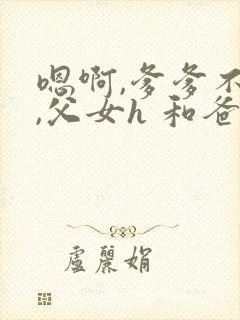 嗯啊,爹爹不
,父女h 和爸
盧麗娟